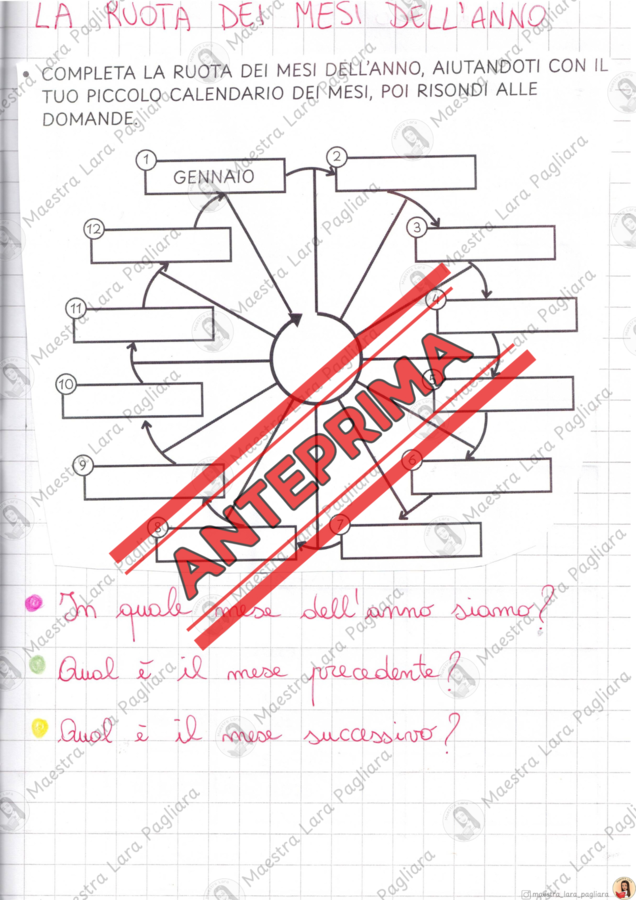 LA RUOTA DEI MESI DELL'ANNO
• COMPLETA LA RUOTA DEI MESI DELL'ANNO, AIUTANDOTI CON IL
TUO PICCOLO CALENDARIO DEI MESI, POI RISONDI ALLE
DOMANDE.
1 GENNAIO
2
3
4
5
6
7
8
9
10
11
12
ANTEPRIMA
In quale mese dell'anno siamo?
Qual è il mese precedente?
Qual è il mese successivo?
Maestra Lara Pagliara
maestra_lara_pagliara